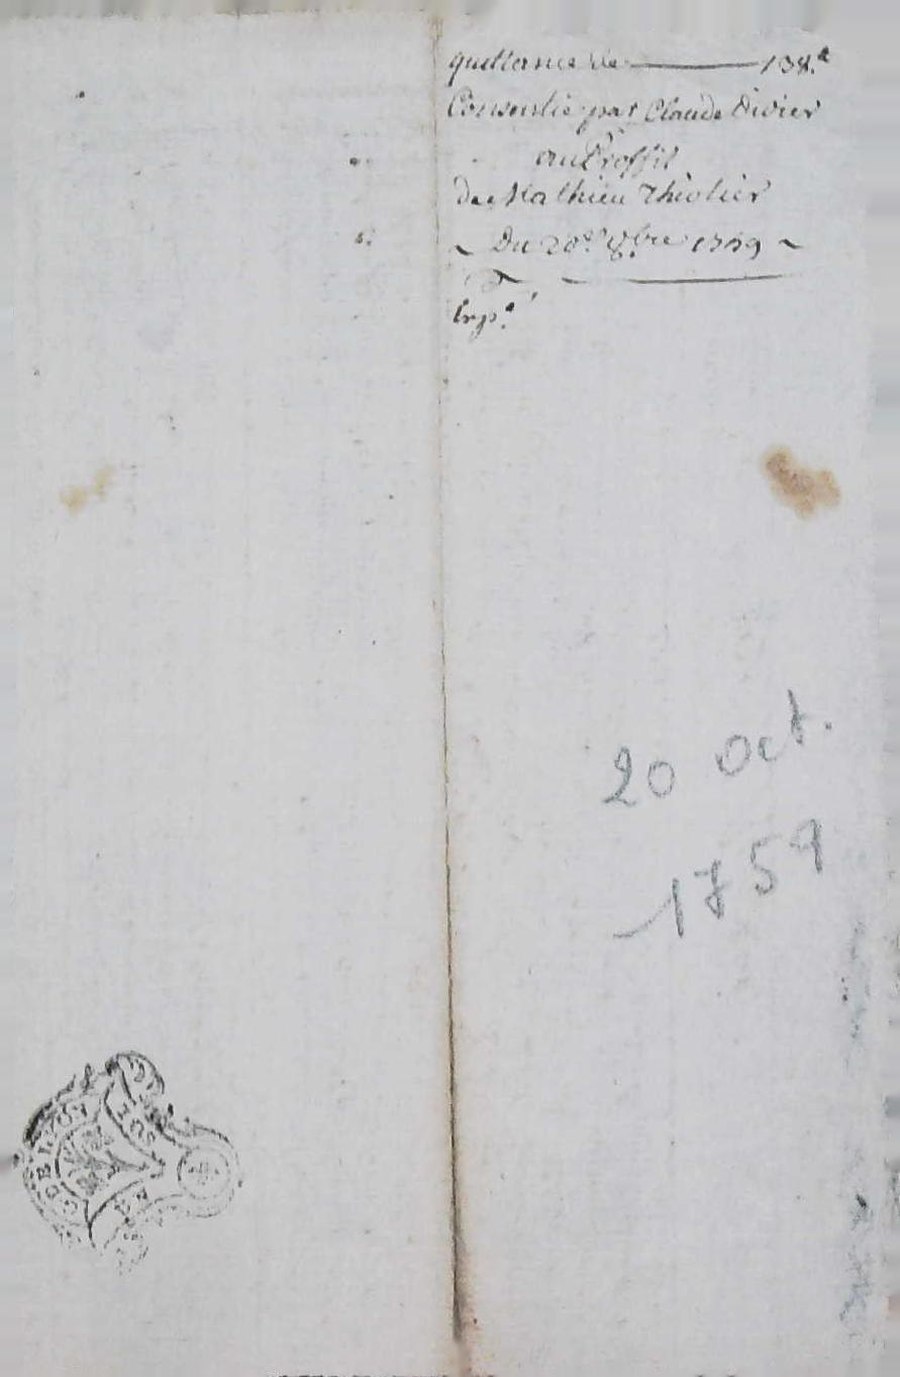 quittance de 138.#
Consentie par Claude Divier
au Proffit
de Mathieu Thiolier
Du 20e 8bre 1759
Exp.
20 oct.
1759
G DE LYON
SOL